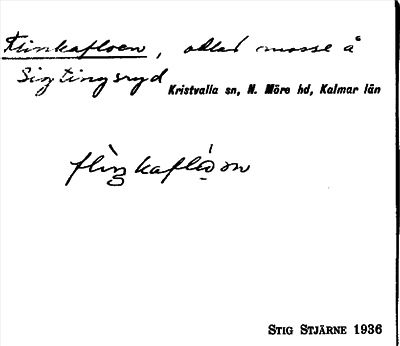 Flinkafloen, odlad mosse å
Sigtingsryd
Kristvalla sn, N. Möre hd, Kalmar län
flìŋkaflóən
STIG STJÄRNE 1936